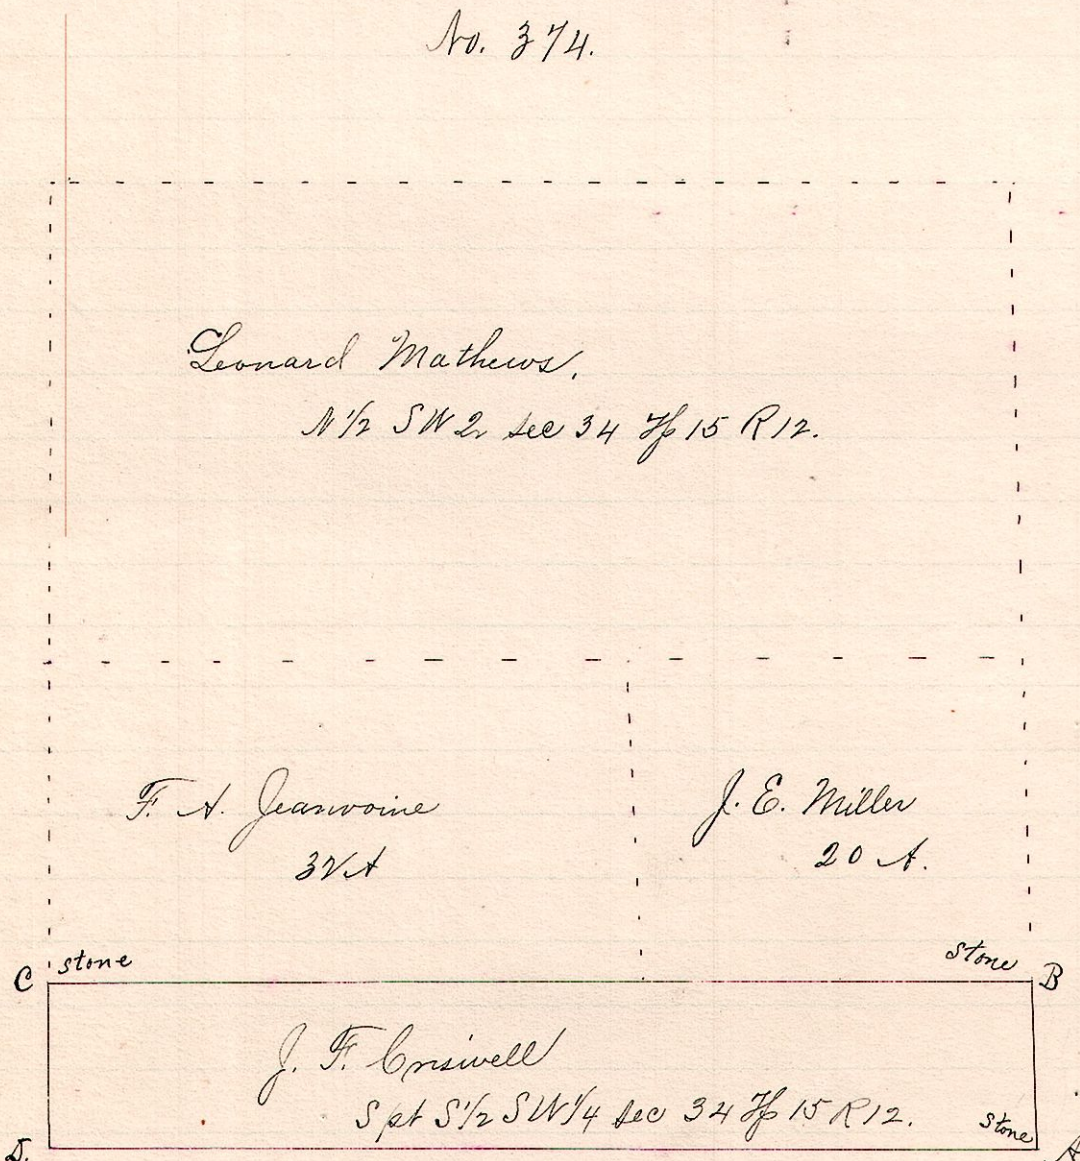 No. 374.
Leonard Mathews.
N 1/2 SW 2 sec 34 Tp 15 R 12.
F. A. Jeanvoine
32 A
J. E. Miller
20 A.
C stone
Stone B
J. F. Criswell
S pt S 1/2 SW 1/4 sec 34 Tp 15 R 12.
Stone
D.
A